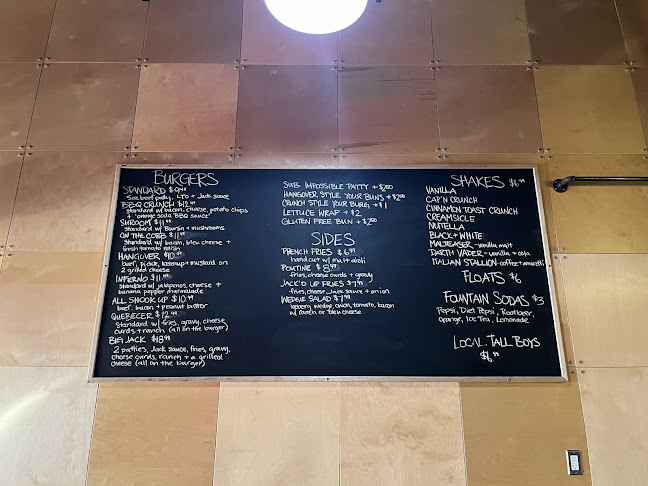 BURGERS
STANDARD $9
5oz beef patty, LTO + Jack sauce
BBQ CRUNCH $12
Standard w/ bacon, cheese, potato chips
+ "orange soda BBQ sauce"
SHROOM $11
Standard w/ Bacon + mushrooms
ON THE COBB $11
Standard w/ bacon, bleu cheese +
fresh tomato relish
HANGOVER $10
beef, pickle, ketchup + mustard on
2 grilled cheese
INFERNO $11
Standard w/ jalapenos, cheese +
banana pepper marmalade
ALL SHOOK UP $10
beef, bacon + peanut butter
QUEBECER $12
Standard w/ fries, gravy, cheese
curds + ranch (all on the burger)
BIG JACK $18
2 patties, Jack sauce, fries, gravy,
cheese curds, ranch + a grilled
cheese (all on the burger)
SUB IMPOSSIBLE PATTY + $2
HANGOVER STYLE YOUR BUNS + $2
CRUNCH STYLE YOUR BURG + $1
LETTUCE WRAP + $2
GLUTEN FREE BUN + $2
SIDES
FRENCH FRIES $6
hand cut w/ malt aioli
POUTINE $8
fries, cheese curds + gravy
JACK'D UP FRIES $7
fries, cheese, Jack sauce + onion
WEDGE SALAD $7
Iceberg wedge, onion, tomato, bacon
w/ ranch or bleu cheese
SHAKES $6
VANILLA
CAP'N CRUNCH
CINNAMON TOAST CRUNCH
CREAMSICLE
NUTELLA
BLACK + WHITE
MALTEASER - vanilla, malt
DARTH VADER - vanilla + cola
ITALIAN STALLION - coffee + amaretti
FLOATS $6
FOUNTAIN SODAS $3
Pepsi, Diet Pepsi, Rootbeer,
Orange, Ice Tea, Lemonade
LOCAL TALL BOYS
$6